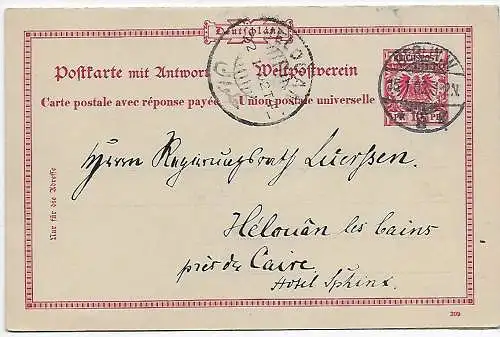 Deutschland
Postkarte mit Antwort Weltpostverein
Carte postale avec réponse payée Union postale universelle
BERLIN W
Nur für die Adresse
Herrn Regierungsrath Luerssen
Hélouân les bains
près du Caire
Hotel Sphinx
209